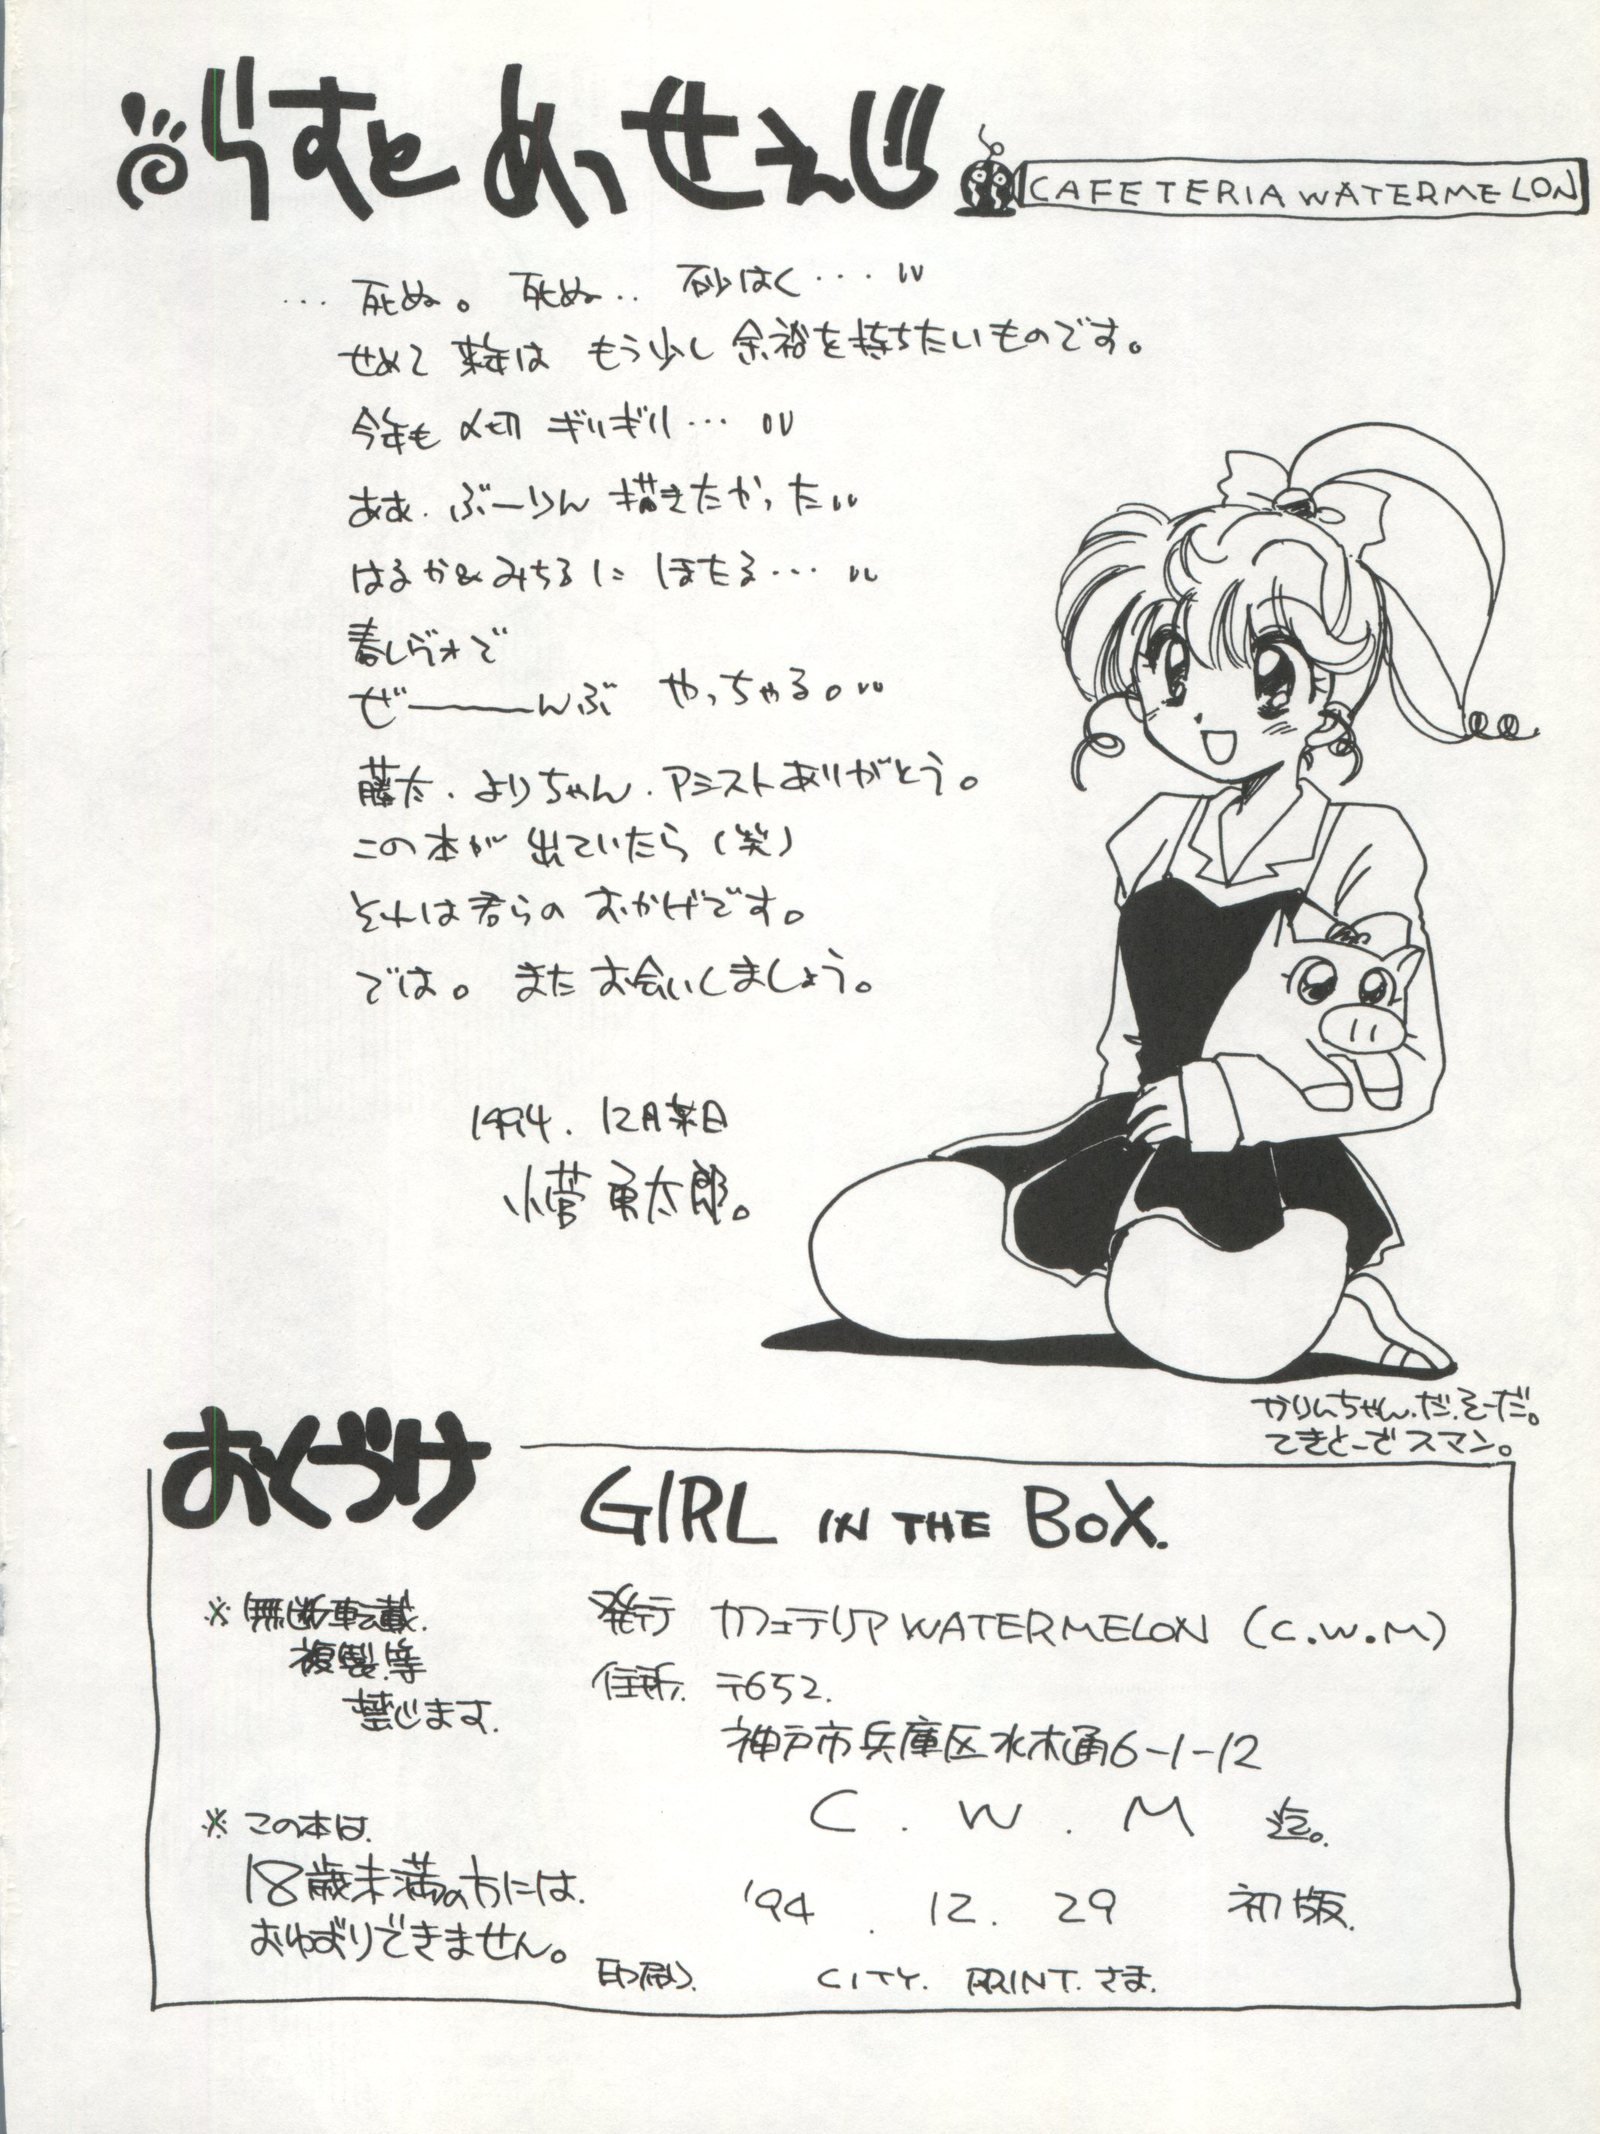 らすと めっせえじ
CAFETERIA WATERMELON
… 死ぬ。 死ぬ‥ 砂はく…
せめて 来年は もう少し 余裕を持ちたいものです。
今年も 〆切 ぎりぎり…
ああ. ぶーりん 描きたかった
はるか&みちるに ほたる…
春レヴォで
ぜーーーんぶ やっちゃる。
藤太. よりちゃん. アシストありがとう。
この本が 出ていたら (笑)
それは君らの おかげです。
では。 また お会いしましょう。
1994. 12月某日
小菅 勇太郎。
かりんちゃん.だ.そーだ。
てきとーで スマン。
おくづけ
GIRL IN THE BOX.
※ 無断転載.
複製.等
禁じます.
発行 カフェテリア WATERMELON (C.W.M)
住所. 〒652.
神戸市兵庫区水木通6-1-12
C . W . M 迄。
※ この本は.
18歳未満の方には.
おゆずりできません。
'94 . 12. 29 初版.
印刷. CITY. PRINT. さま.